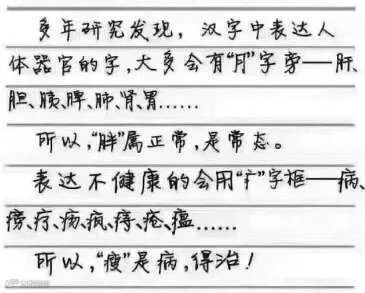 多年研究发现，汉字中表达人
体器官的字，大多会有“月”字旁——肝、
胆、胰、脾、肺、肾、胃……
所以，“胖”属正常，是常态。
表达不健康的会用“疒”字框——病、
痨、疗、疡、疯、痔、疮、瘟……
所以，“瘦”是病，得治！